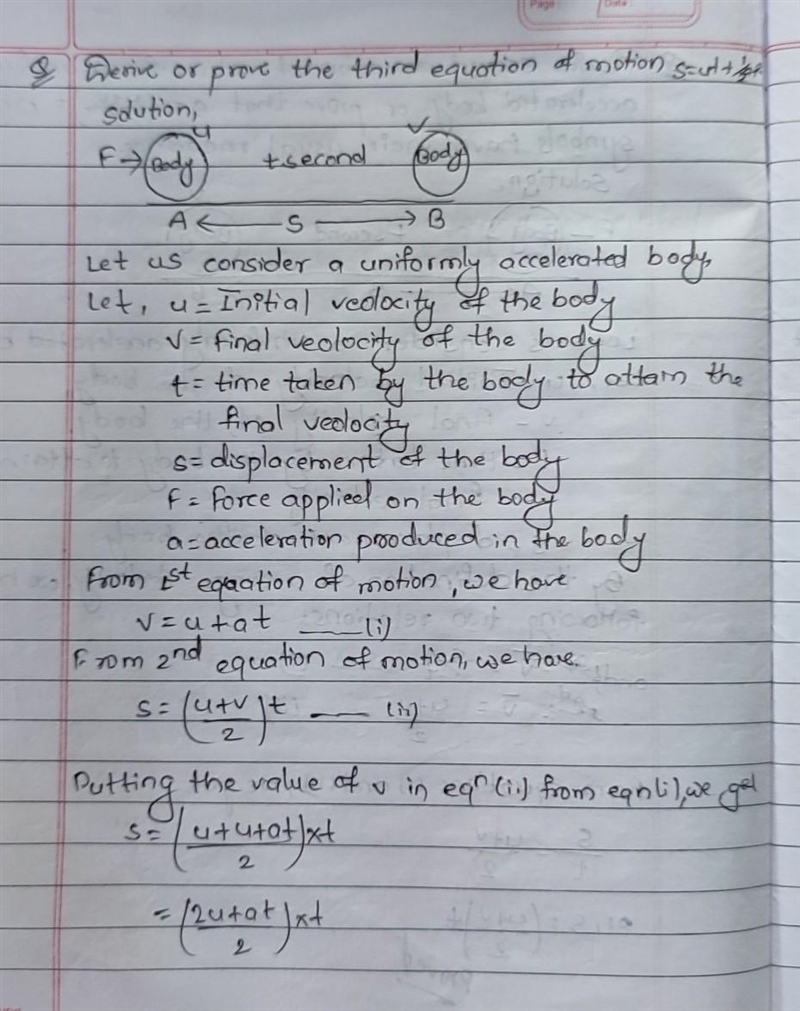 Page
Date
Q Derive or prove the third equation of motion s=ut+½at
solution,
u v
F→ Body t second Body
A ← S → B
Let us consider a uniformly accelerated body,
Let, u = Initial veolocity of the body
v = final veolocity of the body
t = time taken by the body to attain the
final veolocity
s = displacement of the body
F = force applied on the body
a = acceleration prooduced in the body
From 1st eqaation of motion, we have
v = u + at —— (i)
From 2nd equation of motion, we have.
s = (u+v/2)t —— (ii)
Putting the value of v in eqn (ii) from eqn (i), we get
s = (u+u+at/2)×t
= (2u+at/2)×t